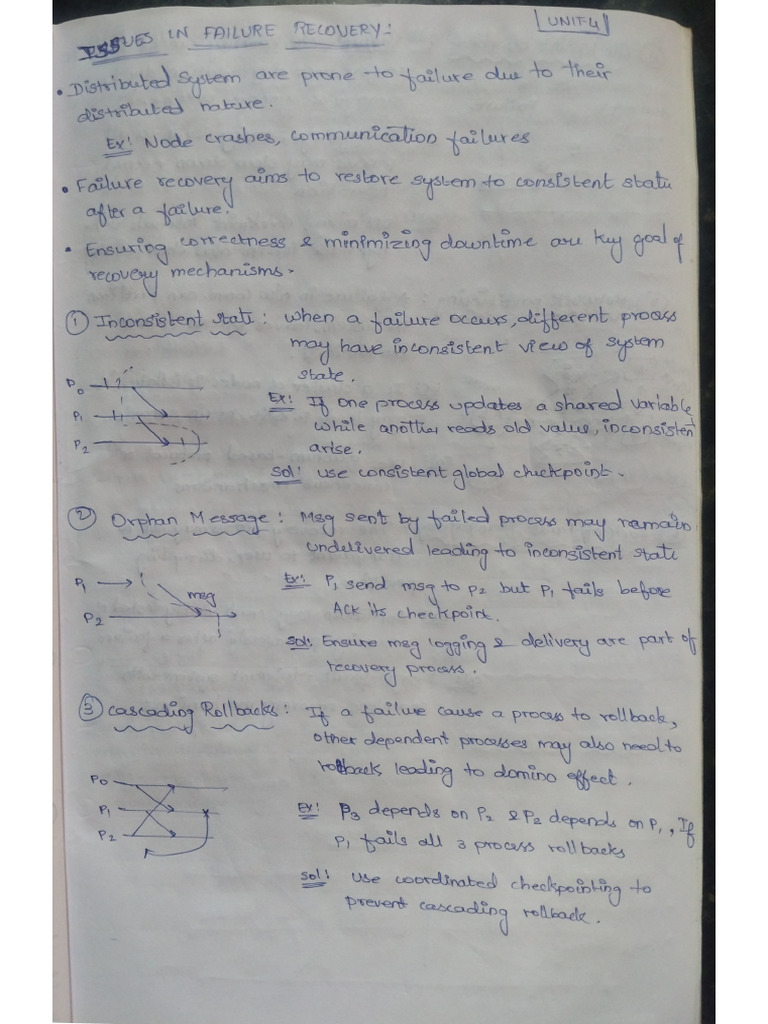 ISSUES IN FAILURE RECOVERY:
UNIT 4
• Distributed System are prone to failure due to their
distributed nature.
Ex: Node crashes, communication failures
• Failure recovery aims to restore system to consistent state
after a failure.
• Ensuring correctness & minimizing downtime are key goal of
recovery mechanisms.
① Inconsistent state: When a failure occurs, different process
may have inconsistent view of system
state.
P0
P1
P2
Ex: If one process updates a shared variable,
while another reads old value, inconsistent
arise.
Sol: use consistent global checkpoint.
② Orphan Message: Msg sent by failed process may remain
undelivered leading to inconsistent state
P1
msg
P2
Ex: P1 send msg to P2 but P1 fails before
Ack its checkpoint.
Sol: Ensure msg logging & delivery are part of
recovery process.
③ Cascading Rollbacks: If a failure cause a process to rollback,
other dependent processes may also need to
rollback leading to domino effect.
P0
P1
P2
Ex: P3 depends on P2 & P2 depends on P1, If
P1 fails all 3 process rollbacks
Sol: use coordinated checkpointing to
prevent cascading rollback.